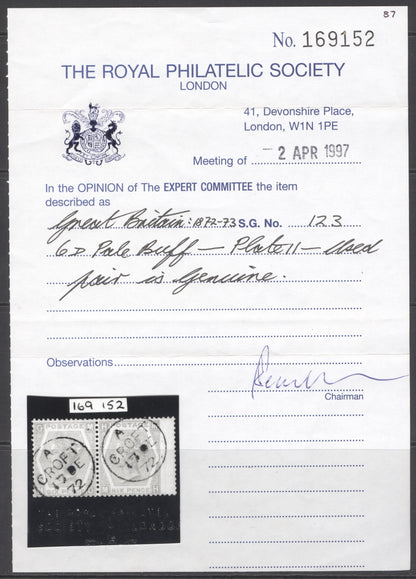 87
No. 169152
THE ROYAL PHILATELIC SOCIETY
LONDON
41, Devonshire Place,
London, W1N 1PE
Meeting of - 2 APR 1997
In the OPINION of The EXPERT COMMITTEE the item
described as
Great Britain: 1872-73 S.G. No. 123
6D Pale Buff — Plate 11 — Used
pair is Genuine.
Observations
Chairman
169 152
POSTAGE
A
CROFT
17 DE
72
A
CROFT
17 DE
72
SIX PENCE